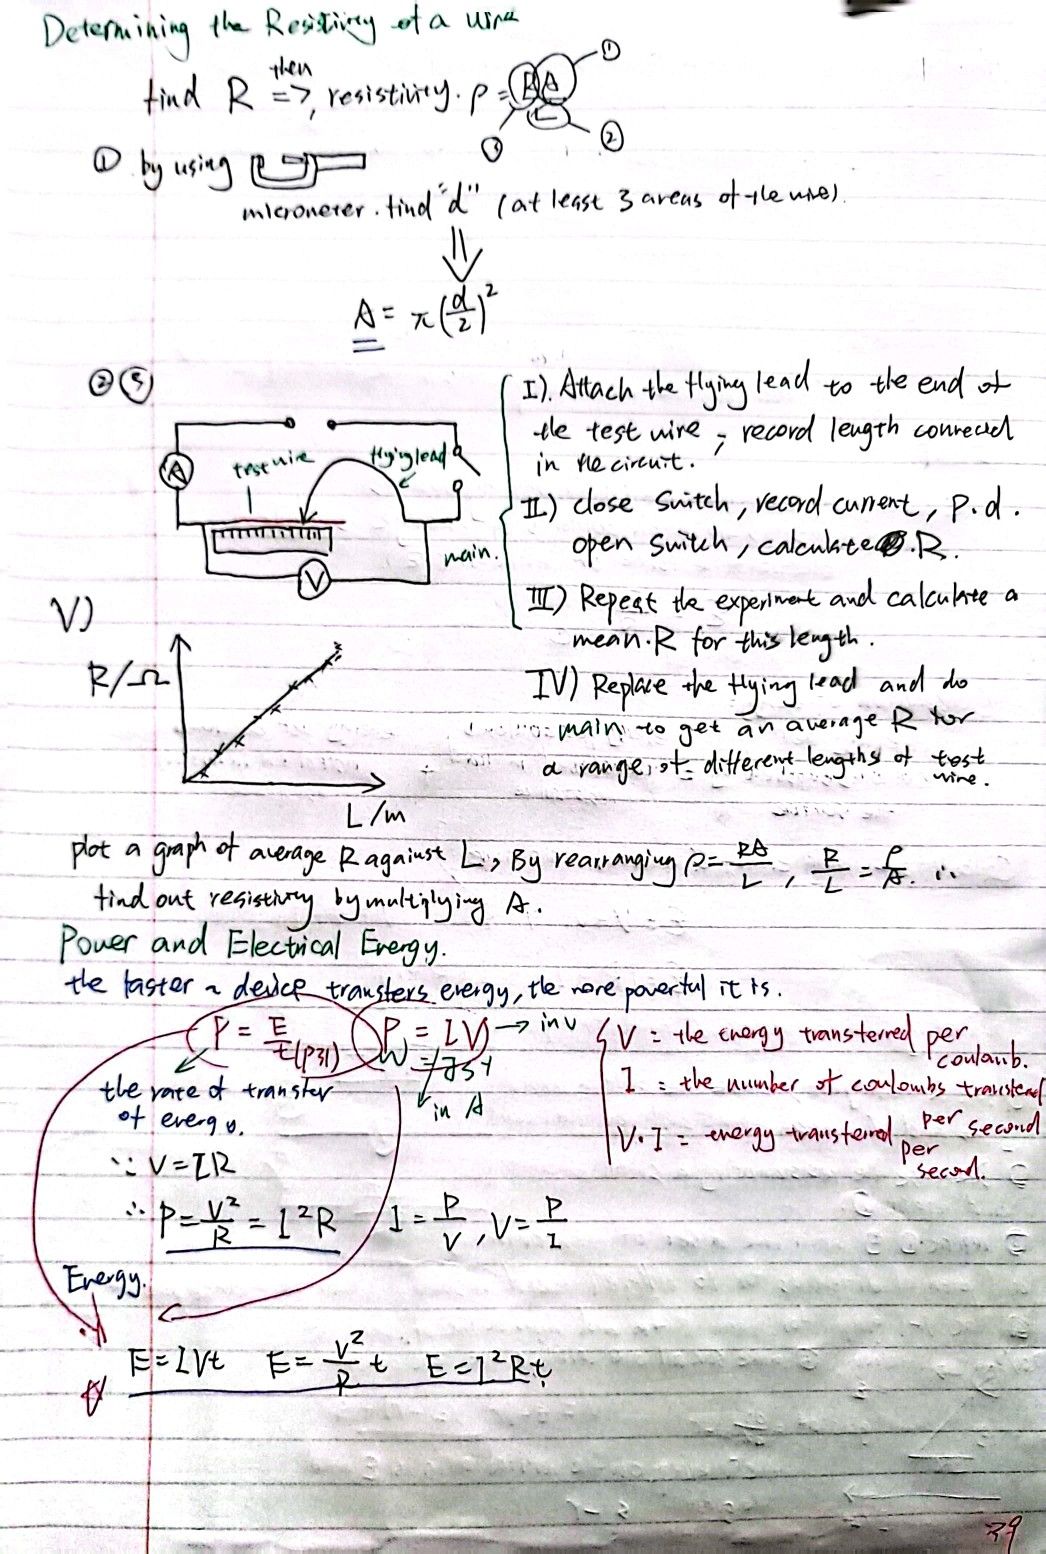 Determining the Resistivity of a wire
find R => then, resistivity. ρ = RA/L ① ② ③
① by using
micrometer. find "d" (at least 3 areas of the wire).
A = π(d/2)²
② ③
A
test wire
flying lead
V
main.
I). Attach the flying lead to the end of
the test wire, record length connected
in the circuit.
II) close switch, record current, p.d.
open switch, calculate R.
III) Repeat the experiment and calculate a
mean R for this length.
IV) Replace the flying lead and do
main to get an average R for
a range of different lengths of test
wire.
V)
R/Ω
L/m
plot a graph of average R against L, By rearranging ρ = RA/L, R/L = ρ/A. ∴
find out resistivity by multiplying A.
Power and Electrical Energy.
the faster a device transfers energy, the more powerful it is.
P = E/t (P31) P = IV → in V
W = Js⁻¹
in A
the rate of transfer
of energy.
V = the energy transferred per
coulomb.
I = the number of coulombs transferred
per second
V·I = energy transferred per
second.
∵ V = IR
∴ P = V²/R = I²R I = P/V, V = P/I
Energy.
E = IVt E = V²/R t E = I²Rt
39